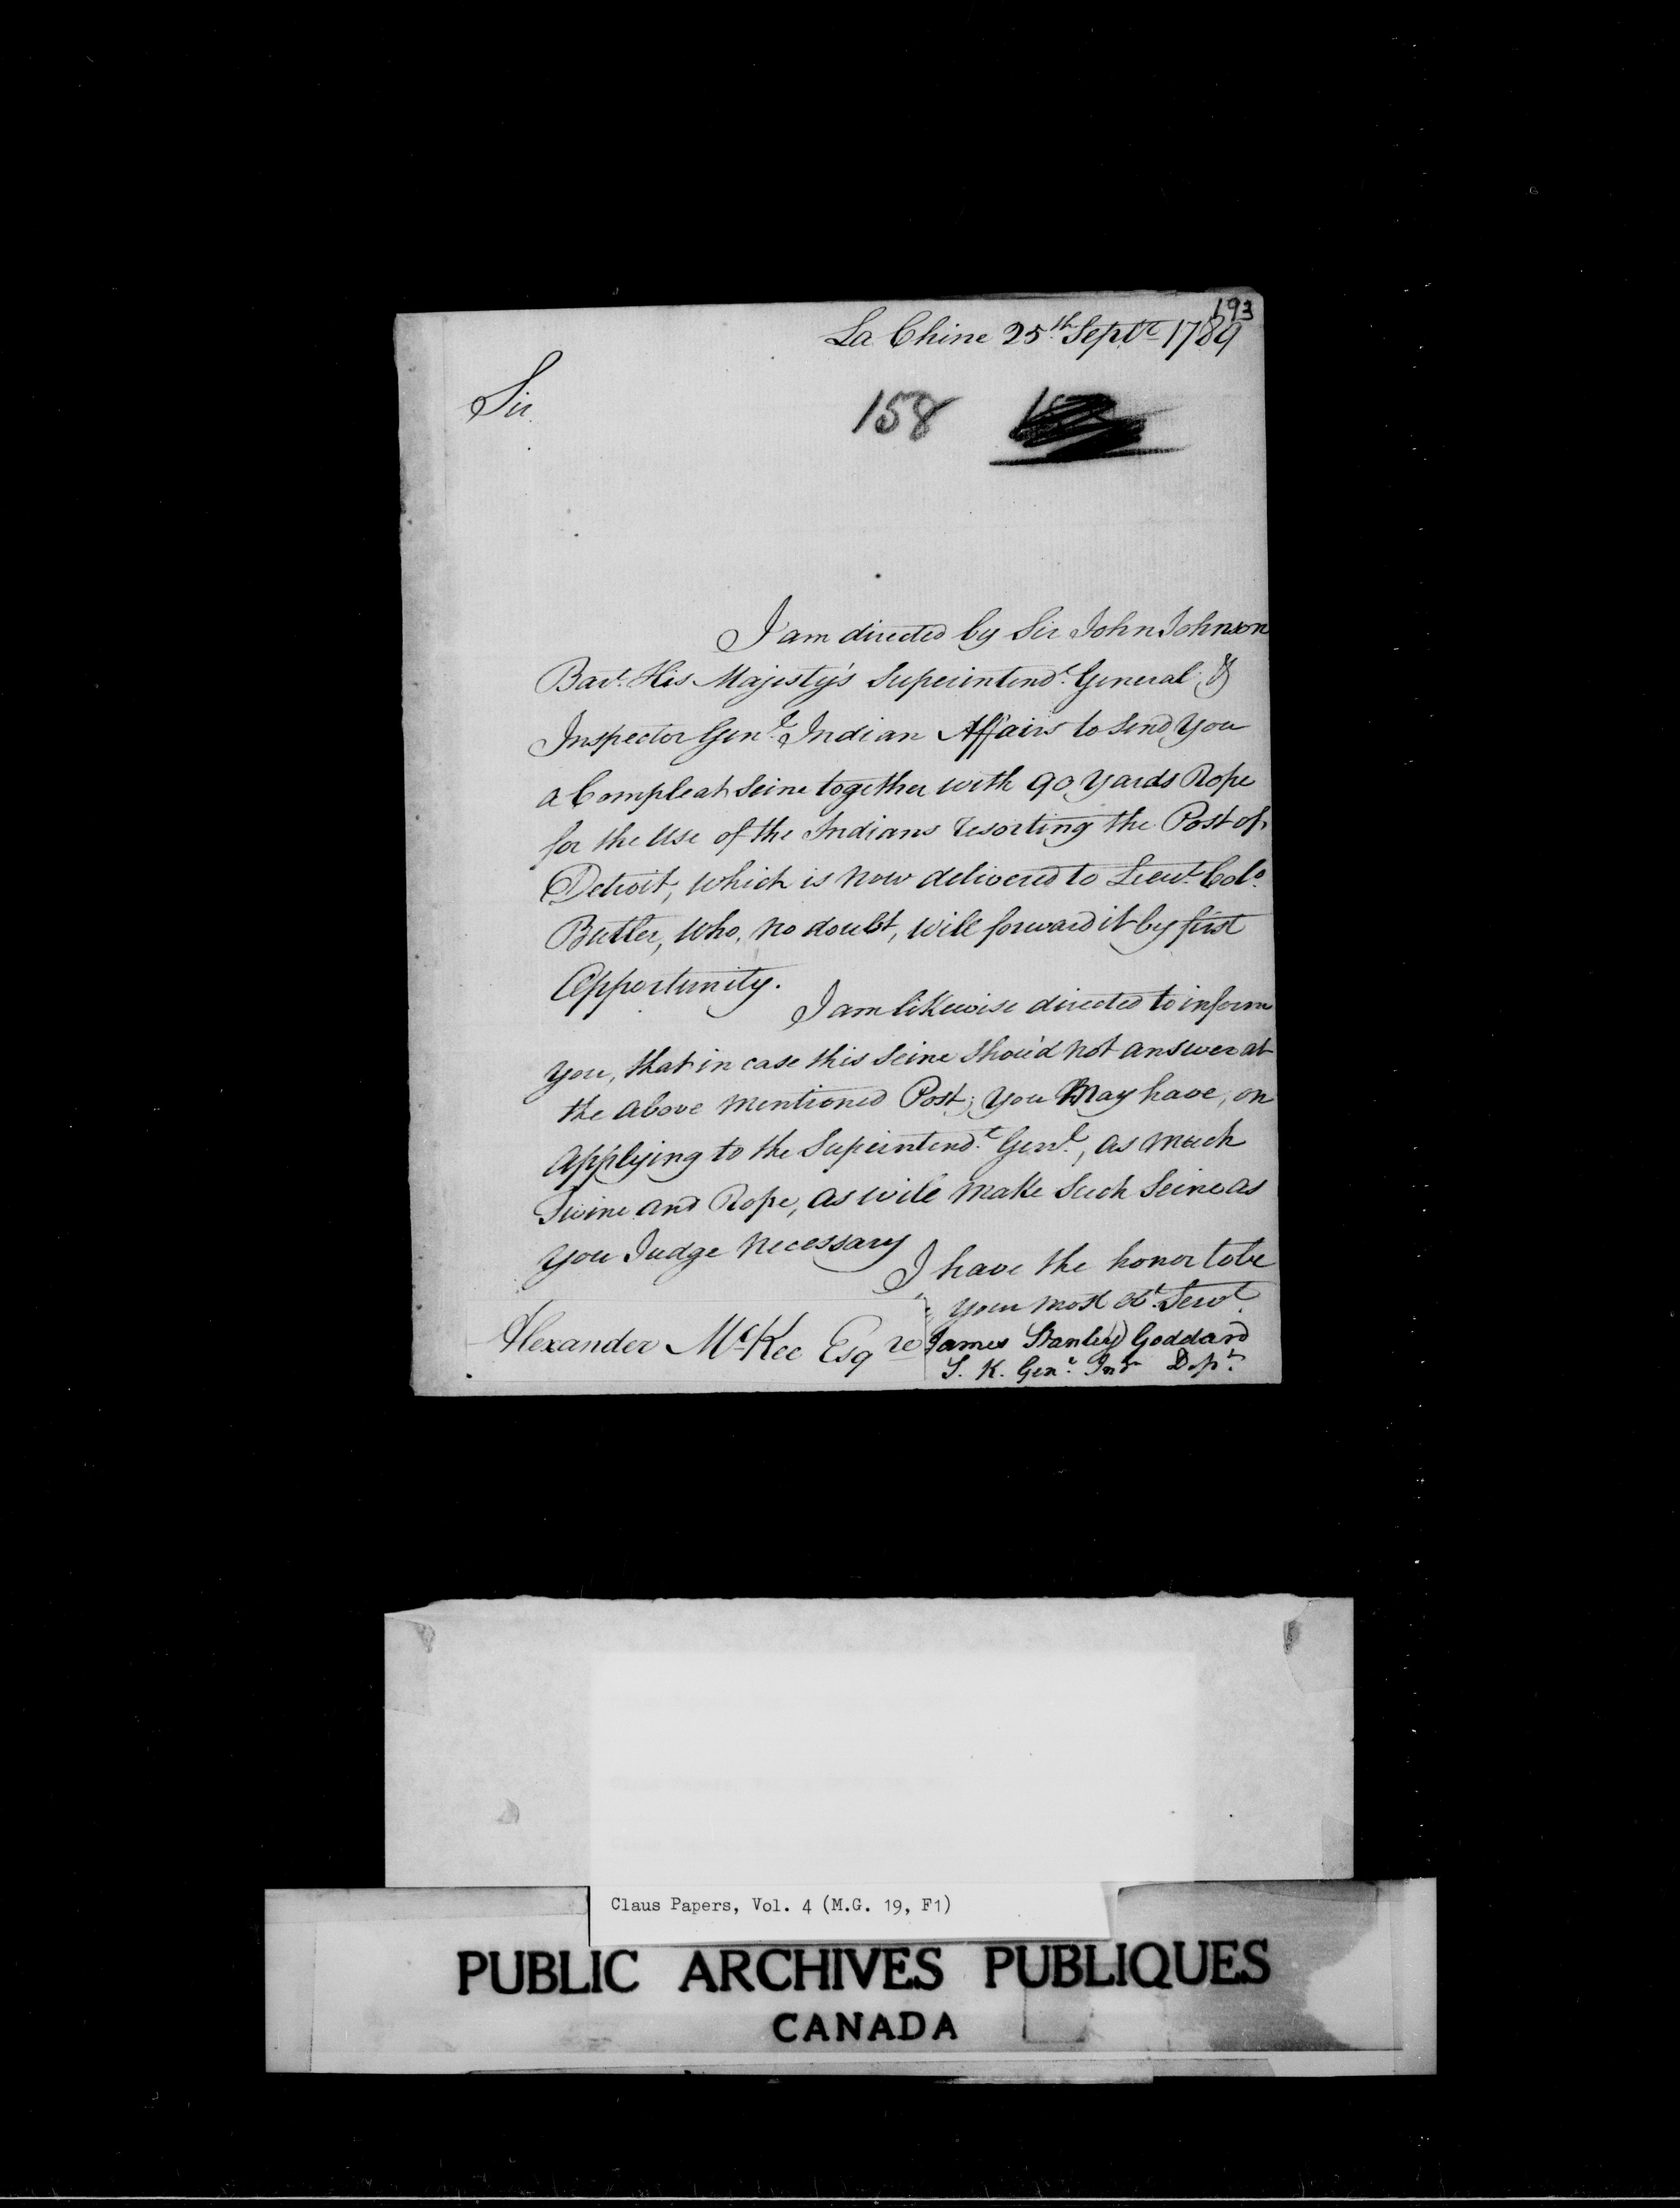 193
La Chine 25th Septr 1789
Sir
158
I am directed by Sir John Johnson
Bart. His Majesty's Superintendt. General &
Inspector Genl. Indian Affairs to send You
a Compleat Seine together with 90 Yards Rope
for the Use of the Indians resorting the Post of
Detroit, which is now delivered to Lieut. Colo.
Butler, Who, no doubt, will forward it by first
Opportunity.
I am likewise directed to inform
You, that in case this Seine shou'd not answer at
the above mentioned Post; You May have, on
Applying to the Superintendt. Genl., as much
Twine and Rope, as will make Such Seine as
You Judge Necessary
I have the honor to be
Your most Obt. Servt.
Alexander McKee Esqre
James Stanley Goddard
S. K. Genl. Indn Dept.
Claus Papers, Vol. 4 (M.G. 19, F1)
PUBLIC ARCHIVES PUBLIQUES
CANADA